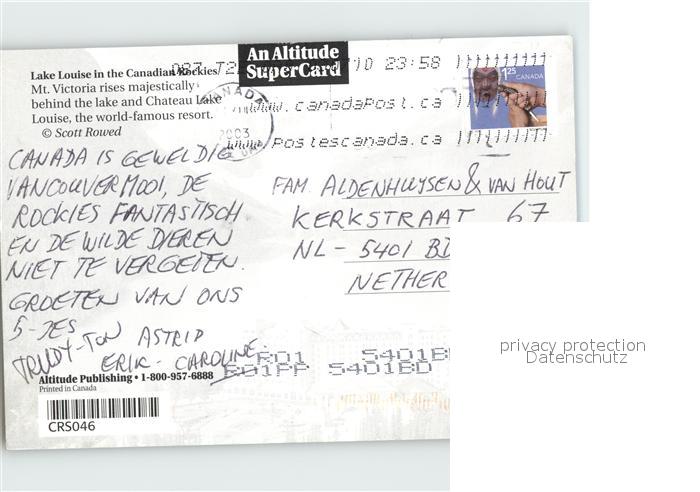 An Altitude
SuperCard
Lake Louise in the Canadian Rockies
Mt. Victoria rises majestically
behind the lake and Chateau Lake
Louise, the world-famous resort.
© Scott Rowed
10 23:58
www.canadaPost.ca
Postescanada.ca
CANADA
2003
1.25 CANADA
CANADA IS GEWELDIG
VANCOUVER MOOI, DE
ROCKIES FANTASTISCH
EN DE WILDE DIEREN
NIET TE VERGETEN.
GROETEN VAN ONS
5-JES
TRUDY-TON ASTRID
ERIK - CAROLINE
FAM. ALDENHUYSEN & VAN HOUT
KERKSTRAAT 67
NL - 5401 BD
NETHER
R01 5401B
R01PP 5401BD
Altitude Publishing • 1-800-957-6888
Printed in Canada
CRS046
privacy protection
Datenschutz